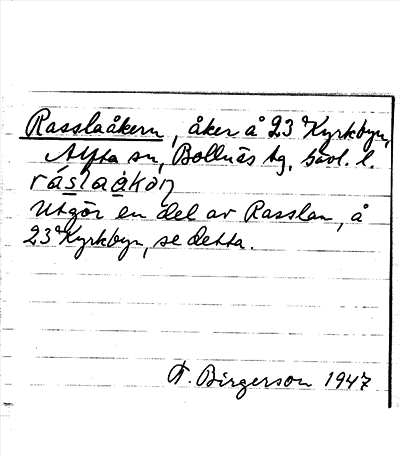 Rasslaåkern, åker å 23 Kyrkbyn,
Alfta sn, Bollnäs tg, Gävl. l.
ráslaåkoŋ
Utgör en del av Rasslan, å
23 Kyrkbyn, se detta.
F. Birgerson 1947